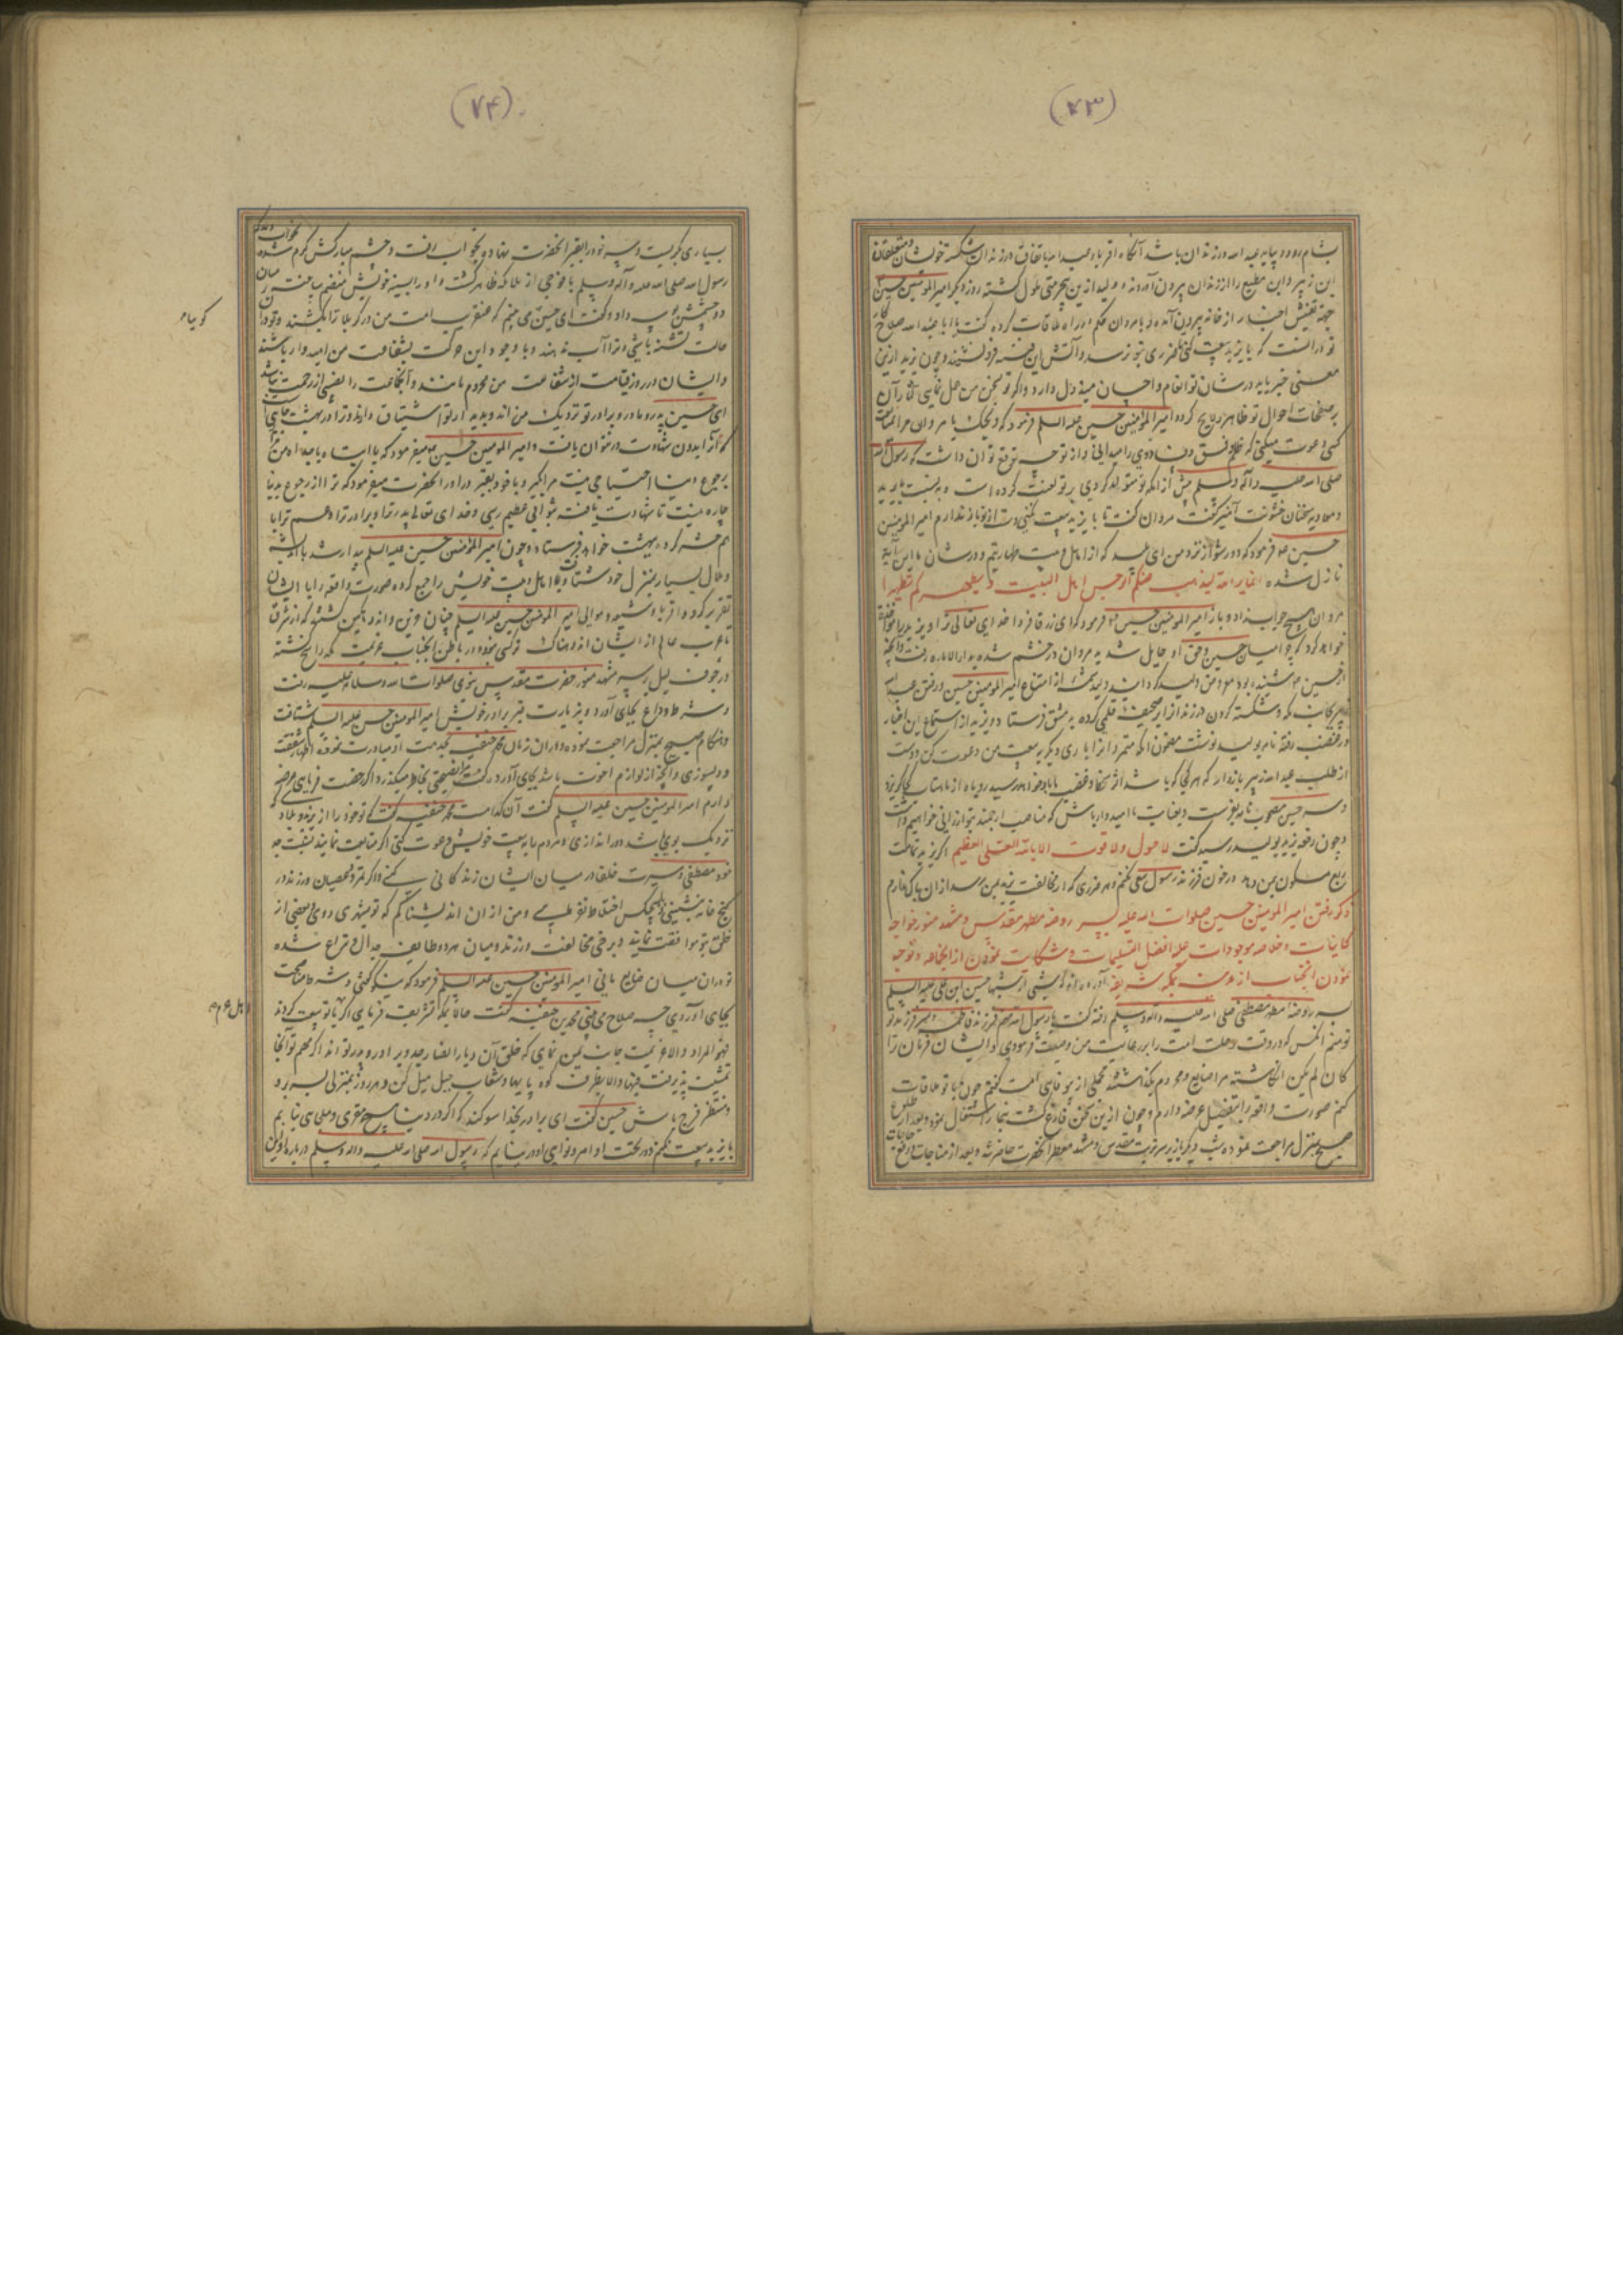 (۷۳)
بشام رود و پیاپی عبداله در زندان باشد آنگاه اقربا و عبداله باتفاق در زندان شکسته خویشان و متعلقان
ابن زبیر و ابن مطیع را از زندان بیرون آوردند و ولید ازین بیحرمتی ملول گشته روز دیگر امیر المومنین حسین
جهة تفتیش اخبار از خانه بیرون آمده و با مروان حکم در راه ملاقات کرده گفت یا ابا عبداله صلاح کار
تو در آنست که با یزید بیعت کنی تا ضرری بتو نرسد و آتش این فتنه فرو نشیند و چون یزید ازین
معنی خبر یابد در شان تو انعام و احسان مبذول دارد و اگر تو بسخن من عمل نمایی آثار آن
بر صفحات احوال تو ظاهر و لایح گردد امیر المؤمنین حسین علیه السلم فرمود که ویحک یا مروان مرا بمتابعت
کسی دعوت میکنی که ظلم و فسق و فساد وی را میدانی و از تو چه توقع توان داشت که رسول الله
صلی الله علیه و آله و سلم پیش از آنکه تو متولد گردی بر تو لعنت کرده است و به نسبت با یزید
و معاویه سخنان خشونت آمیز گفت مروان گفت تا با یزید بیعت نکنی دست از تو باز ندارم امیر المؤمنین
حسین ع فرمود که دور شو از نزد من ای پلید که از اهل بیت طهارتیم و در شان ما این آیة
نازل شده انما یرید الله لیذهب عنکم الرجس اهل البیت و یطهرکم تطهیرا
مروان هیچ جواب نداد و باز امیر المومنین حسین ع فرمود که ای زرقا فردا خدای تعالی ترا و یزید را مواخذه
خواهد کرد که چرا میان حسین و حق او حایل شدید مروان در خشم شده بدار الاماره رفت و آنچه
از حسین ع شنیده بود معروض ولید گردانید و ولید شمهٔ از امتناع امیر المومنین حسین و رفتن عبداله
زبیر بجانب مکه و شکسته کردن در زندان از ابر صحیفهٔ قلمی کرده به دمشق فرستاد و یزید از استماع این اخبار
در غضب رفته نامه بولید نوشت مضمون آنکه متمردان را باری دیگر به بیعت من دعوت کن و دست
از طلب عبداله زبیر بازدار که هر کجا که باشد از چنگ و غضب ما باو خواهد رسید روباه از ماهتاب کجا گریزد
و سر حسین مصحوب نامه بفرست و بعنایت ما امیدوار باش که مناصب ارجمند بتو ارزانی خواهیم داشت
و چون رقعه یزید بولید رسید گفت لا حول ولا قوت الا بالله العلی العظیم اگر یزید تمامت
ربع مسکون بمن دهد در خون فرزند رسول سعی نکنم و هر ضرری که از مخالفت یزید بمن رسد از آن باک ندارم
ذکر رفتن امیر المومنین حسین صلوات الله علیه بسر روضه مطهر مقدس و مشهد منور خواجه
کاینات و خلاصه موجودات علیه افضل التسلیمات و شکایت نمودن از مخالفه و توجه
نمودن آنجناب از مدینه بمکه شریفه آورده اند که شبی از شبها حسین ابن علی علیه السلم
بسر روضه مطهر مصطفی صلی الله علیه و اله و سلم رفته گفت یا رسول الله منم فرزند فاطمه و پسر فرزند تو
تو منم آنکس که در وقت رحلت امت را بر رعایت من وصیت فرمودی و ایشان فرمان ترا
کان لم یکن انگاشته مرا ضایع و محروم بگذاشتند مجملی از بیوفایی امت گفتم چون با تو ملاقات
کنم صورت واقعه را بتفصیل عرضه دارم و چون ازین سخن فارغ گشت بنماز اشتغال نمود و بعد از طلوع
صبح بمنزل مراجعت نموده شب دیگر باز بر سر تربت مقدس و مشهد معطر انحضرت حاضر شد و بعد از مناجات
(۷۴)
بسیاری بگریست و سر خود را بقبر انحضرت نهاد و بخواب رفت و چشم مبارکش گرم شده
رسول الله صلی الله علیه و آله و سلم با فوجی از ملائکه ظاهر گشت و او را بسینه خویش منضم ساخت و میان
دو چشمش بوسه داد و گفت ای حسین می بینم که عنقریب امت من در کربلا ترا بکشند و تو در آن
حالت تشنه باشی و ترا آب ندهند و با وجود این حرکت بشفاعت من امیدوار باشند
و ایشان در روز قیامت از شفاعت من محروم مانند و آنجماعت را نصیبی از رحمت نباشد
ای حسین پدر و مادر و برادر تو نزدیک من اند و بدیدار تو اشتیاق دارند و ترا در بهشت جایی
که آنرا بدون شهادت نتوان یافت و امیر المومنین حسین ع میفرمود که یا جداه من
برجوع دنیا احتیاجی نیست مرا بگیر و با خود بقبر در آور انحضرت میفرمود که ترا از رجوع بدنیا
چاره نیست تا شهادت یافته بثوابی عظیم رسی و خدای تعالی پدر ترا و برادر ترا و عم ترا با
هم حشر کرده ببهشت خواهد فرستاد و چون امیر المؤمنین حسین علیه السلم بیدار شد با اندیشه
و ملال بسیار بمنزل خود شتافت و اهل بیت خویش را جمع کرده صورت واقعه را با ایشان
تقریر کرد و اقربا و شیعه و موالی امیر المومنین حسین علیه السلم چنان حزین و اندوهگین گشتند که از مشرق
تا مغرب عالم از ایشان اندوهناک تر کسی نبود و در باطن آنجناب عزیمت مکه راسخ گشته
در جوف لیل بسر مشهد منور حضرت مقدس نبوی صلوات الله و سلامه علیه رفت
و شرط وداع بجای آورد و بزیارت قبر برادر خویش امیر المومنین حسن علیه السلم شتافت
و هنگام صبح بمنزل مراجعت نموده و در آن زمان محمد حنفیه بخدمت او مبادرت نموده اظهار شفقت
و دلسوزی و آنچه از لوازم اخوت باشد بجای آورد و گفت مرا نصیحتی بخاطر میگذرد اگر رخصت فرمایی بعرض
دارم امیر المومنین حسین علیه السلم گفت آن کدامست محمد حنفیه گفت که تو خود را از یزید و بلادی که
نزدیک بوی باشد دور اندازی و مردم را به بیعت خویش دعوت کنی اگر متابعت نمایند بسنت جد
خود مصطفی و سیرت خلفا در میان ایشان زندکانی کنی و اگر تمرد و عصیان ورزند در
کنج خانه نشینی و با هیچکس اختلاط نفرمایی و من از آن اندیشناکم که تو بشهری روی و بعضی از
خلق بتو موافقت نمایند و برخی مخالفت ورزند و میان هر دو طایفه جدال و نزاع شده
تو در آن میان ضایع مانی امیر المومنین حسین علیه السلم فرمود که نیکو گفتی و شرط مناصحت
بجای آوردی چه صلاح می بینی محمد بن حنفیه گفت حالا بمکه تشریف فرمایی اگر با تو بیعت کردند
فهو المراد و الا عزیمت جانب یمن نمای که خلق آن دیار انصار جد و پدر و برادر تو اند اگر مهم تو آنجا
تمشیت پذیرفت فبها و الا بطرف کوه پایها و شعاب جبل میل کن و هر روز بمنزلی بسر بر و
و منتظر فرج باش حسین گفت ای برادر بخدا سوکند که اگر در دنیا هیچ مقری و ملجایی نیابم
با یزید بیعت نکنم و در تحت اوامر و نواهی او در نیایم که رسول الله صلی الله علیه و اله و سلم در باره او